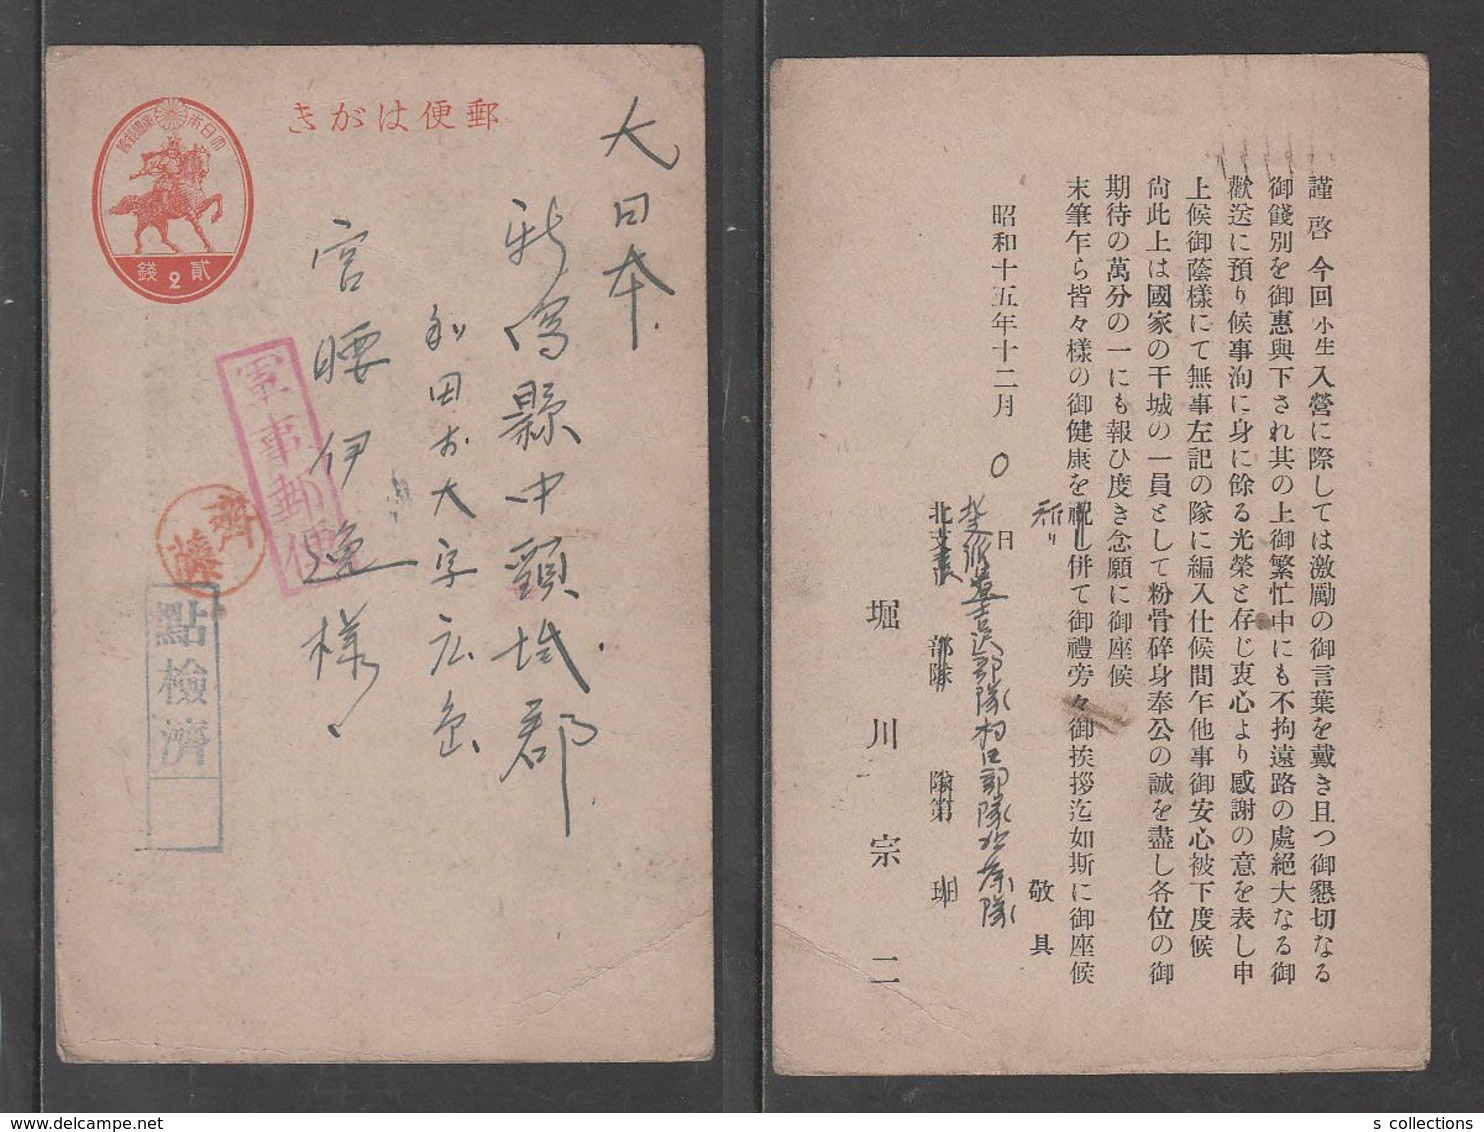 郵便はがき
大日本帝國郵便
貳2錢
大日本
新潟縣中頸城郡
和田村大字
宮腰伊
様
軍事郵便
齊藤
點檢濟
謹啓今回小生入營に際しては激勵の御言葉を戴き且つ御懇切なる
御餞別を御惠與下され其の上御繁忙中にも不拘遠路の處絕大なる御
歡送に預り候事洵に身に餘る光榮と存じ衷心より感謝の意を表し申
上候御蔭樣にて無事左記の隊に編入仕候間乍他事御安心被下度候
尙此上は國家の干城の一員として粉骨碎身奉公の誠を盡し各位の御
期待の萬分の一にも報ひ度き念願に御座候
末筆乍ら皆々樣の御健康を祝し併て御禮旁々御挨拶迄如斯に御座候
祈り
敬具
昭和十五年十二月〇日
部隊村口部隊
北支 部隊 隊第 班
堀川宗二
s collections